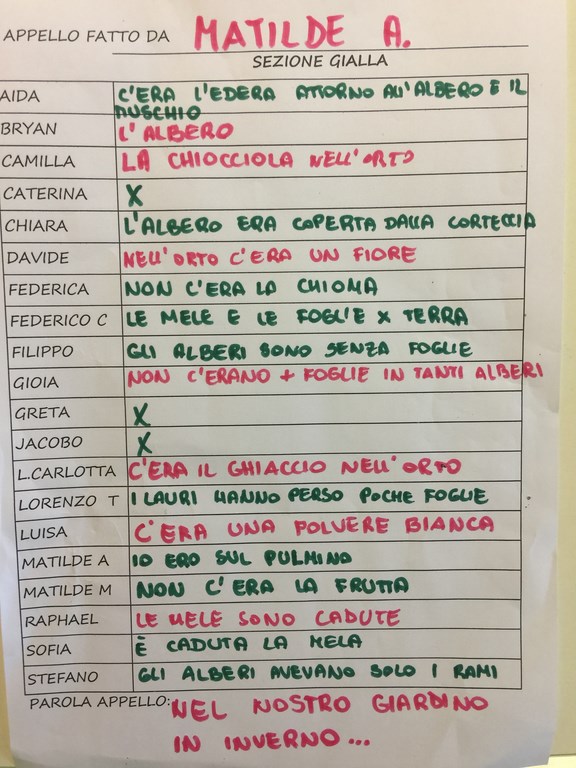 APPELLO FATTO DA MATILDE A.
SEZIONE GIALLA
AIDA C'ERA L'EDERA ATTORNO ALL'ALBERO E IL
MUSCHIO
BRYAN L'ALBERO
CAMILLA LA CHIOCCIOLA NELL'ORTO
CATERINA X
CHIARA L'ALBERO ERA COPERTA DALLA CORTECCIA
DAVIDE NELL'ORTO C'ERA UN FIORE
FEDERICA NON C'ERA LA CHIOMA
FEDERICO C LE MELE E LE FOGLIE X TERRA
FILIPPO GLI ALBERI SONO SENZA FOGLIE
GIOIA NON C'ERANO + FOGLIE IN TANTI ALBERI
GRETA X
JACOBO X
L.CARLOTTA C'ERA IL GHIACCIO NELL'ORTO
LORENZO T I LAURI HANNO PERSO POCHE FOGLIE
LUISA C'ERA UNA POLVERE BIANCA
MATILDE A IO ERO SUL PULMINO
MATILDE M NON C'ERA LA FRUTTA
RAPHAEL LE MELE SONO CADUTE
SOFIA È CADUTA LA MELA
STEFANO GLI ALBERI AVEVANO SOLO I RAMI
PAROLA APPELLO: NEL NOSTRO GIARDINO
IN INVERNO...